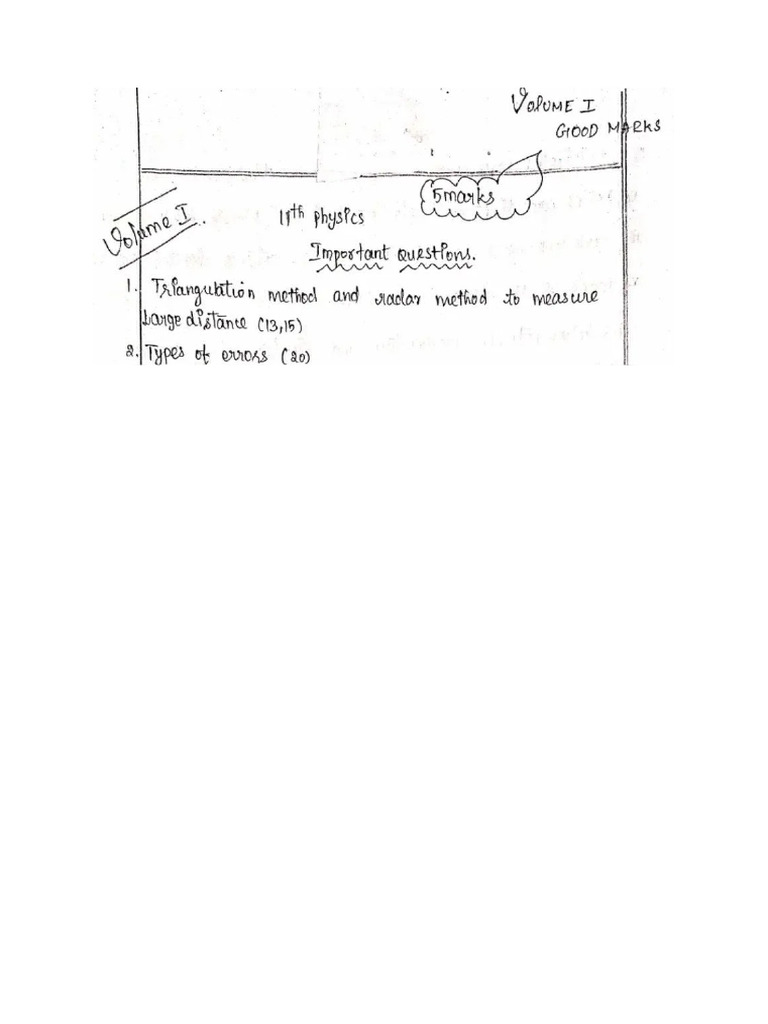 VOLUME I
GOOD MARKS
5marks
Volume I..
11th physics
Important Questions.
1. Triangulation method and radar method to measure
Large distance (13,15)
2. Types of errors (20)